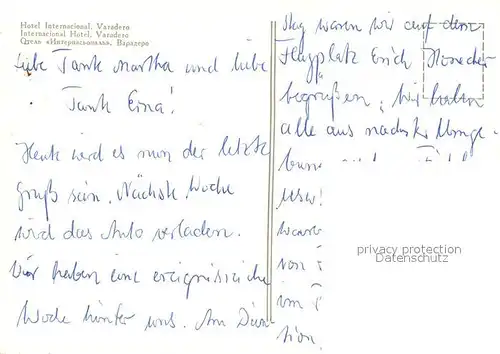 Hotel Internacional, Varadero
Internacional Hotel, Varadero
Отель «Интернасьональ», Варадеро
Liebe Tante Martha und liebe
Tante Erna!
Heute wird es nun der letzte
Gruß sein. Nächste Woche
wird das Auto verladen.
Wir haben eine ereignisreiche
Woche hinter uns. Am Dien-
stag waren wir auf dem
Flugplatz Erich Honecker
begrüßen, wir haben
alle aus nächster Umge-
bung
usw!
von
im
tion.
privacy protection
Datenschutz